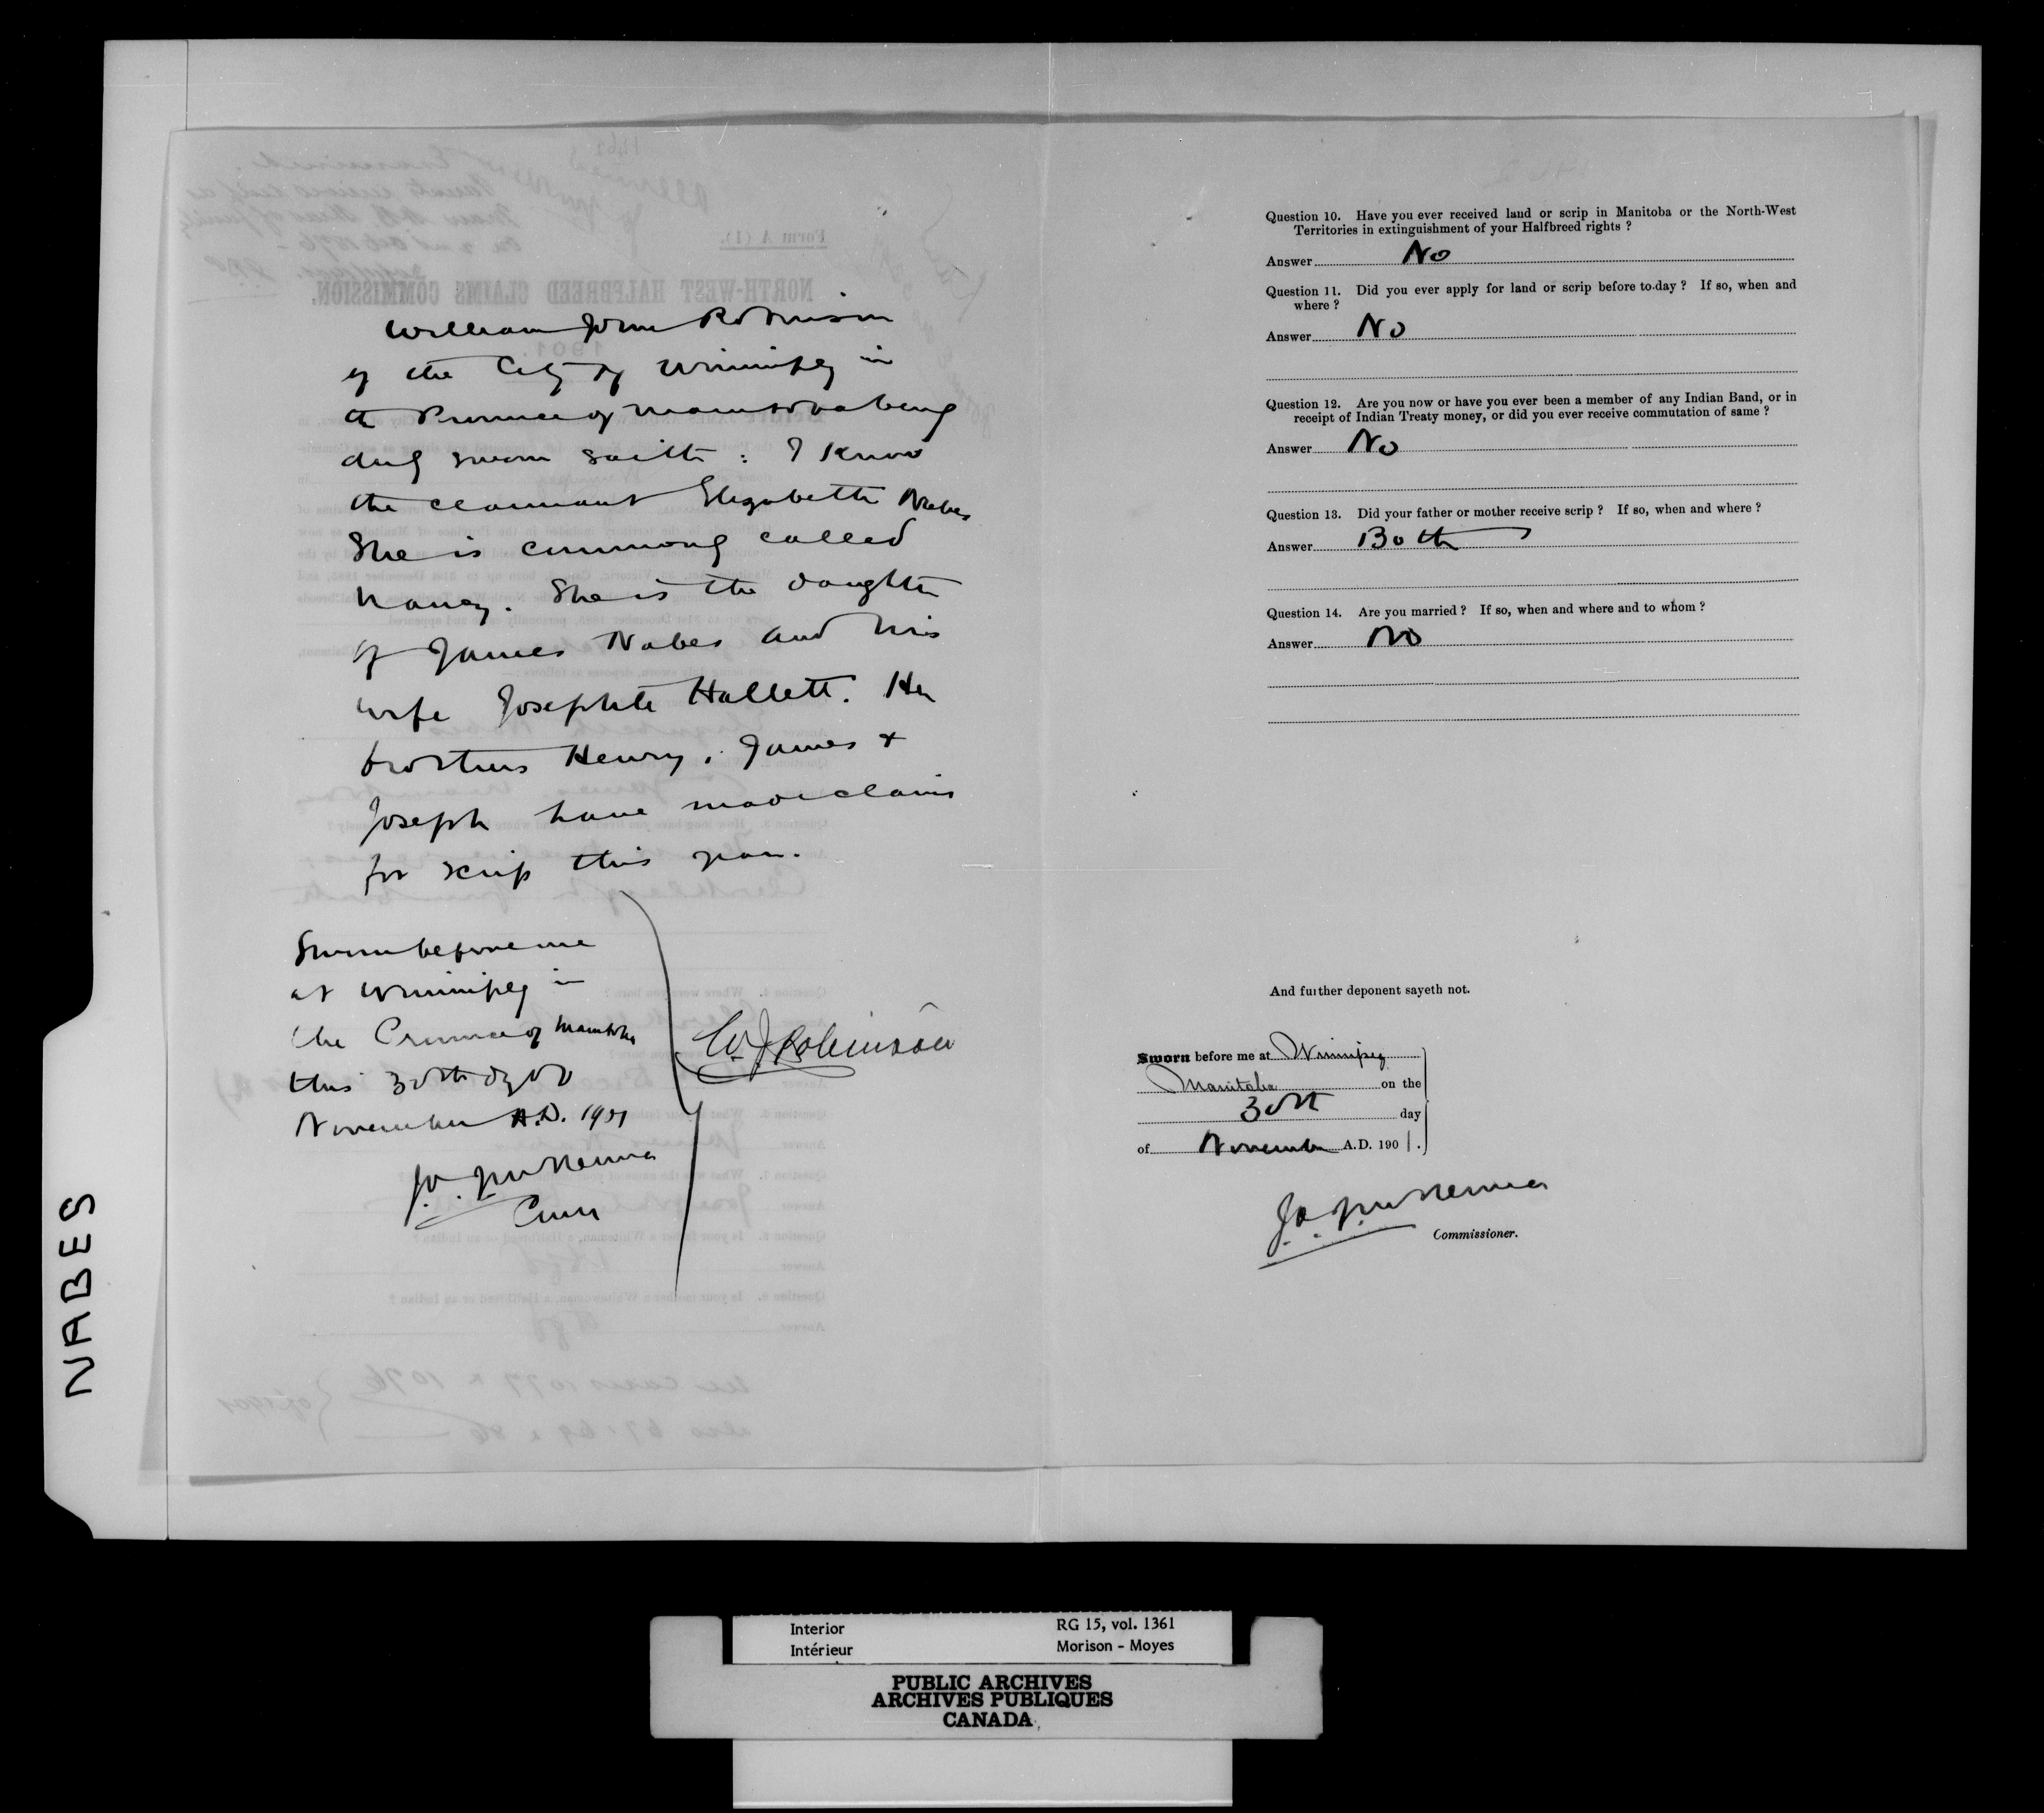 William John Robinson
of the City of Winnipeg in
the Province of Manitoba being
duly sworn saith : I know
the claimant Elizabeth Nabes
She is commonly called
Nancy. She is the daughter
of James Nabes and his
wife Josephte Hallett. Her
brothers Henry, James &
Joseph have made claims
for scrip this year.
Sworn before me
at Winnipeg in
the Province of Manitoba
this 30th day of
November A.D. 1901
W. J. Robinson
J. A. J. McKenna
Comr
Question 10. Have you ever received land or scrip in Manitoba or the North-West
Territories in extinguishment of your Halfbreed rights ?
Answer No
Question 11. Did you ever apply for land or scrip before to-day ? If so, when and
where ?
Answer No
Question 12. Are you now or have you ever been a member of any Indian Band, or in
receipt of Indian Treaty money, or did you ever receive commutation of same ?
Answer No
Question 13. Did your father or mother receive scrip ? If so, when and where ?
Answer Both
Question 14. Are you married ? If so, when and where and to whom ?
Answer No
And further deponent sayeth not.
Sworn before me at Winnipeg
Manitoba on the
30th day
of November A.D. 1901.
J. A. J. McKenna
Commissioner.
NABES
Interior RG 15, vol. 1361
Intérieur Morison - Moyes
PUBLIC ARCHIVES
ARCHIVES PUBLIQUES
CANADA